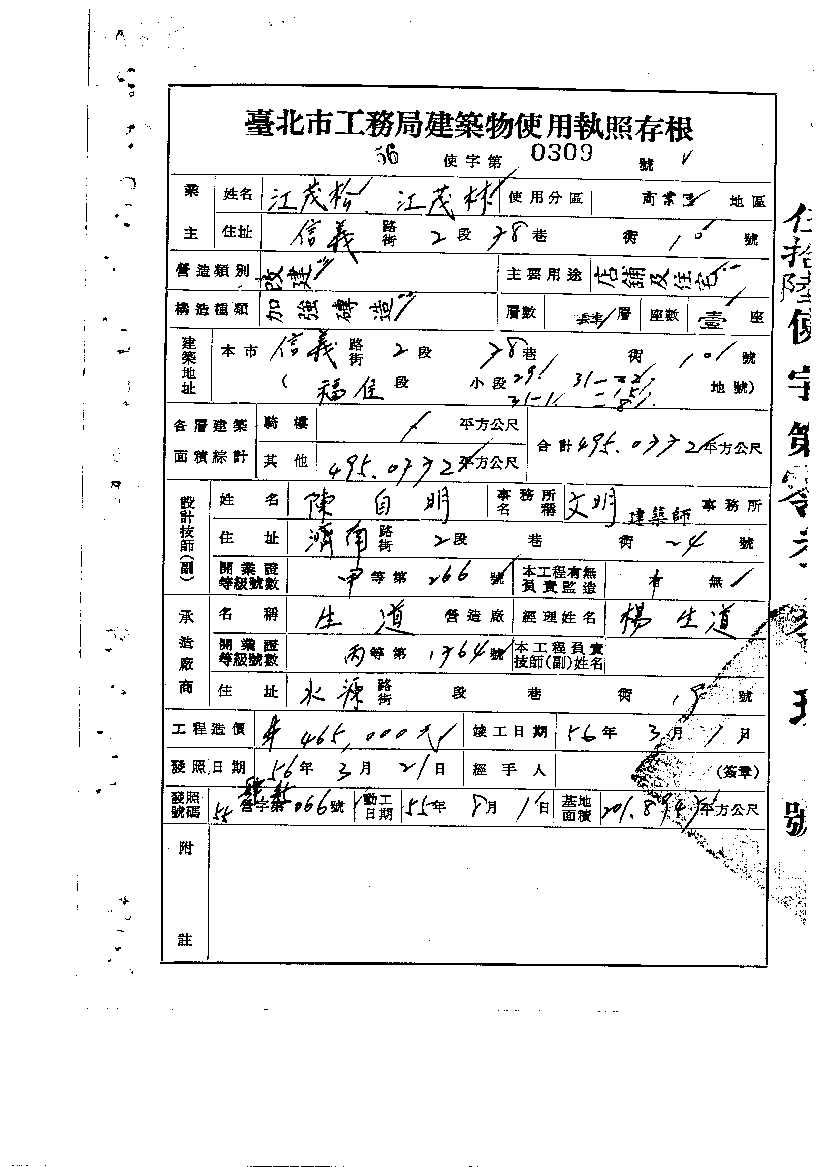 臺北市工務局建築物使用執照存根
56 使字第 0309 號
業主 姓名 江茂松 江茂林 使用分區 商業區 地區
住址 信義 路街 2 段 78 巷 衖 10 號
營造類別 改建 主要用途 店鋪及住宅
構造種類 加強磚造 層數 層 座數 壹 座
建築地址 本市 信義 路街 2 段 78 巷 衖 10 號
( 福住 段 小段 29 31-22 地號)
31-1
各層建築面積綜計 騎樓 平方公尺 合計 495.0332 平方公尺
其他 495.0332 平方公尺
設計技師(副) 姓名 陳自明 事務所名稱 文明建築師 事務所
住址 濟南 路街 2 段 巷 衖 24 號
開業證等級號數 甲等第 266 號 本工程有無負責監造 有 無
承造廠商 名稱 生道 營造廠 經理姓名 楊生道
開業證等級號數 丙等第 1364 號 本工程負責技師(副)姓名
住址 水源 路街 段 巷 衖 號
工程造價 465,000元 竣工日期 56年 3月 1日
發照日期 56年 3月 21日 經手人 (簽章)
發照號碼 55 營字第 066 號 動工日期 55年 8月 1日 基地面積 平方公尺
附註
伍拾陸使字第零 號